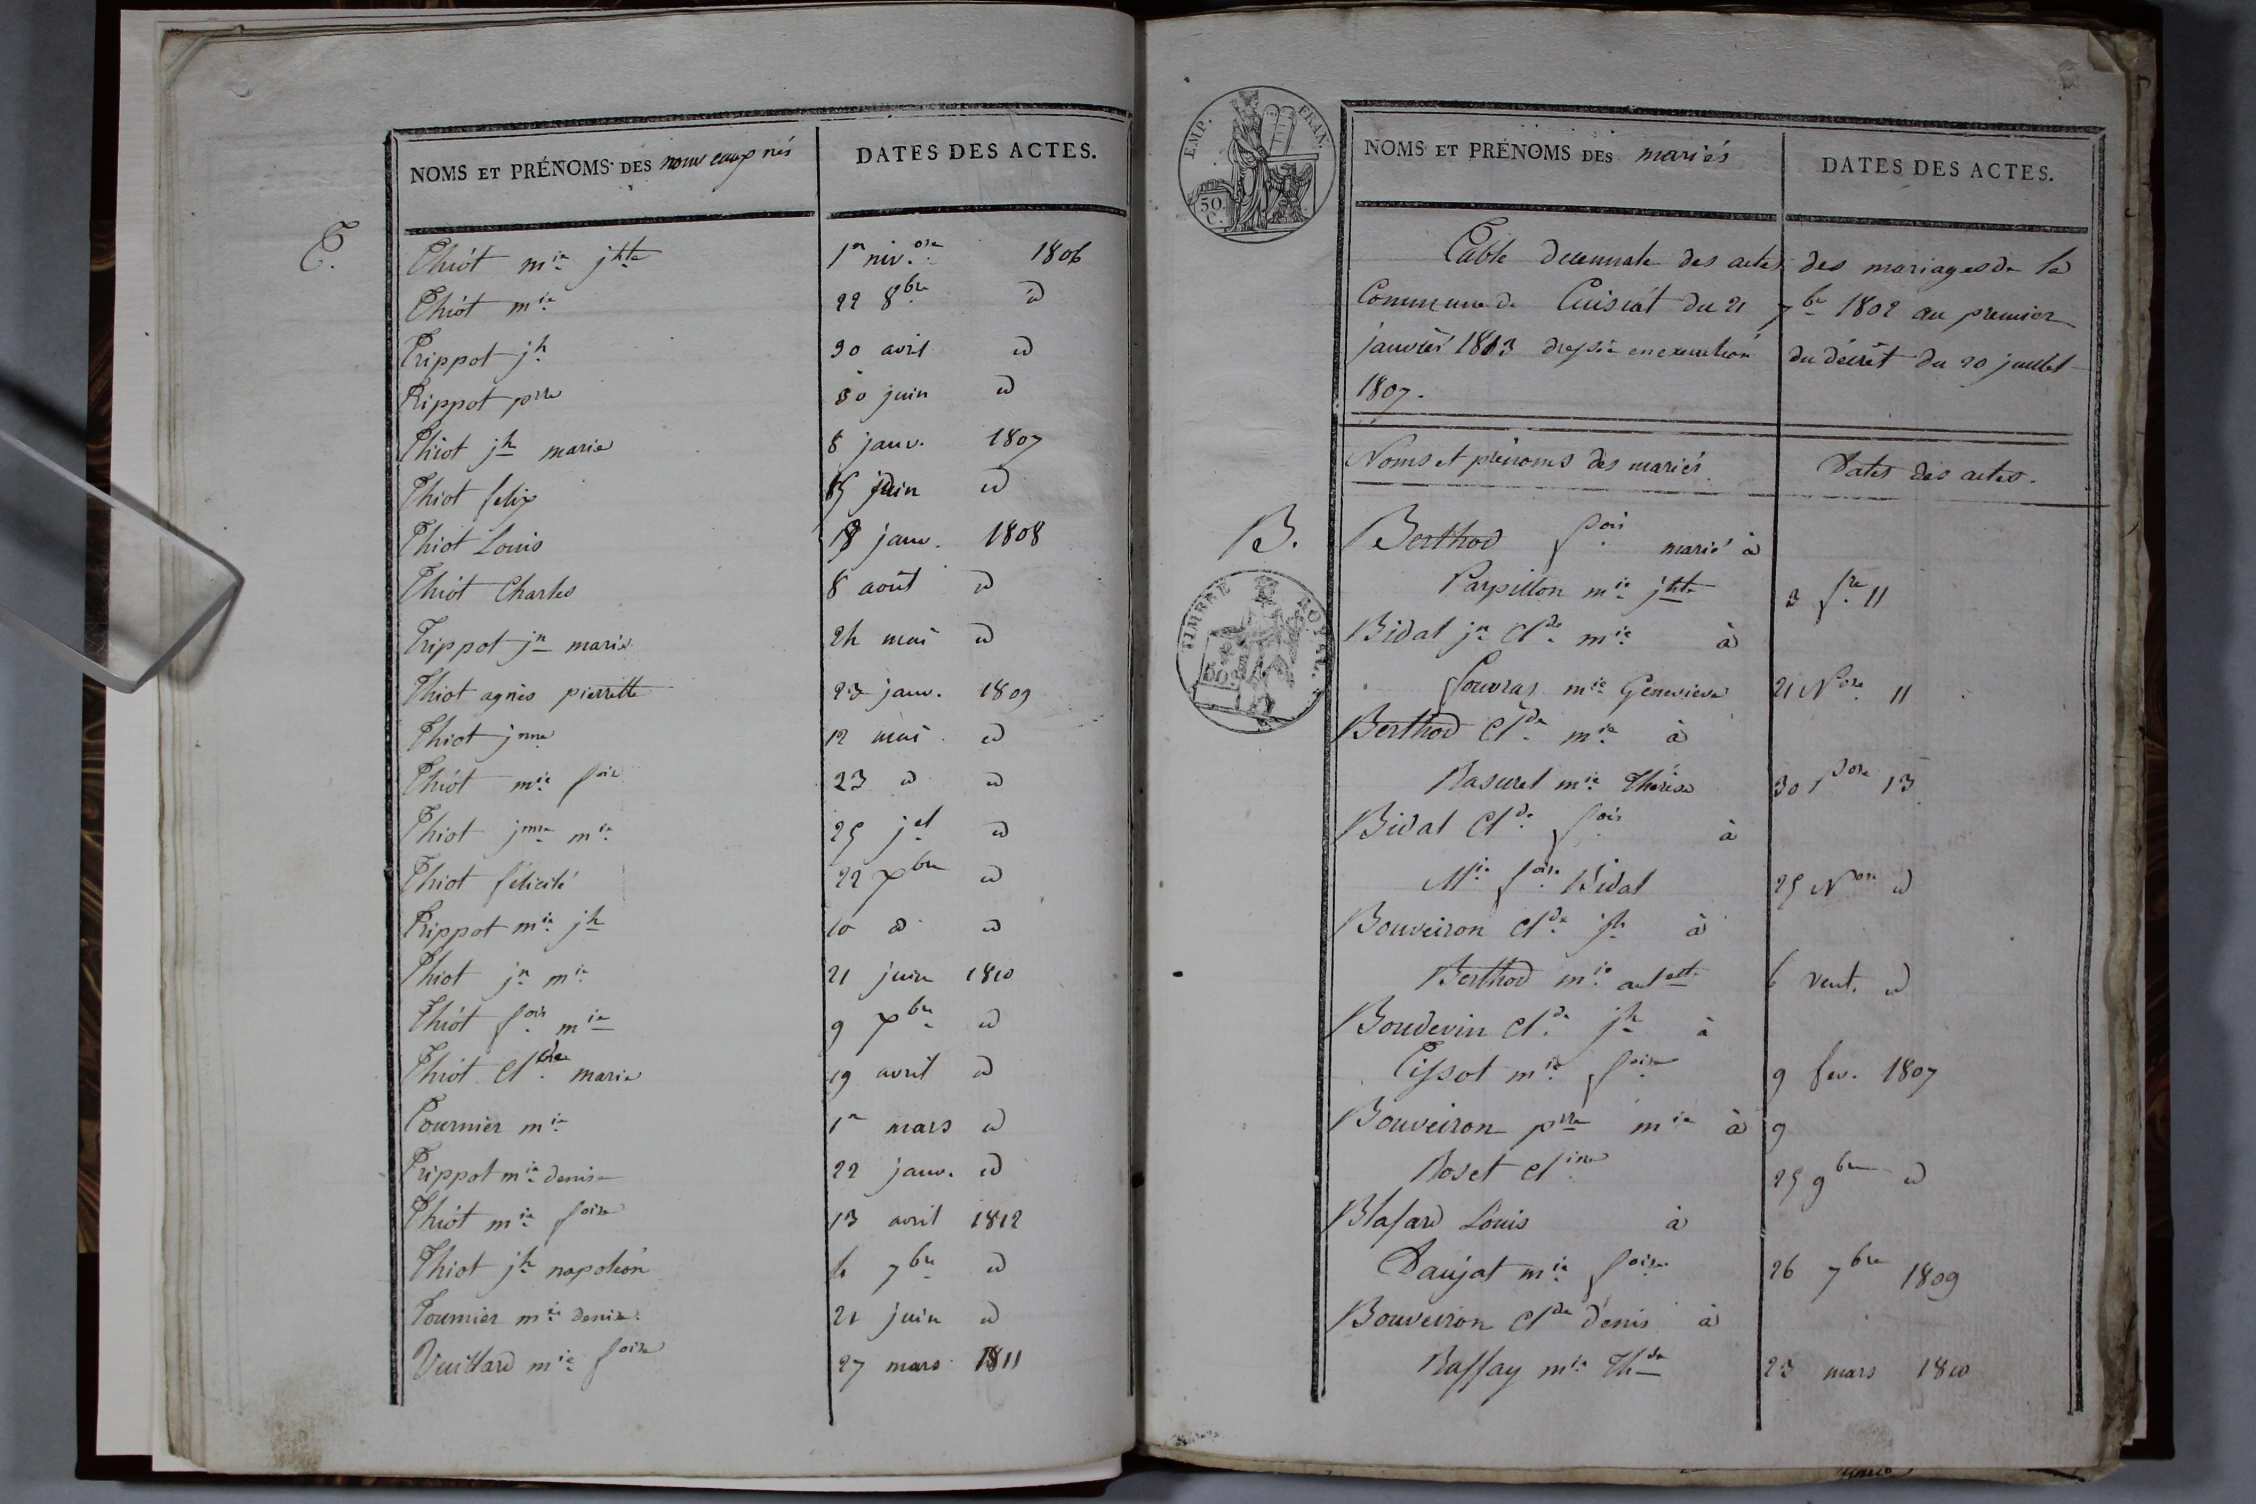 NOMS ET PRÉNOMS DES nouveaux nés
DATES DES ACTES.
T.
Thiot mie jhte 1er niv.ose 1806
Thiot mie 22 8bre id
Trippot jh 30 avril id
Trippot prre 30 juin id
Thiot jh marie 8 janv. 1807
Thiot felix 15 juin id
Thiot Louis 18 janv. 1808
Thiot Charles 8 août id
Trippot jn marie 24 mai id
Thiot agnès pierrette 23 janv. 1809
Thiot jnne 12 mai id
Thiot mie foise 23 id id
Thiot jnne mie 25 jet id
Thiot félicité 22 xbre id
Trippot mie jh 10 id id
Thiot jn mie 21 juin 1810
Thiot fois mie 9 xbre id
Thiot Cl marie 19 avril id
Tournier mie 1er mars id
Trippot mie denise 22 janv. id
Thiot mie foise 13 avril 1812
Thiot jh napoléon 6 7bre id
Tournier mie denise 21 juin id
Vuillard mie foise 27 mars 1811
EMP. FRAN.
50 C.
NOMS ET PRÉNOMS DES mariés
DATES DES ACTES.
Table decennale des actes des mariages de la
Commune de Cuisiat du 21 7bre 1802 au premier
janvier 1813 dressée en execution du décrêt du 20 juillet
1807.
Noms et prénoms des mariés Dates des actes.
B.
TIMBRE ROYAL
Berthod fois marié à
Parpillon mie jhte 3 fre 11
Bidal jn Clde mie à
Gouvras mie Genevieve 21 Nose 11
Berthod Clde mie à
Rasurel mie Thérèse 30 13
Bidal Clde fois à
Mie foise Bidal 25 Nose id
Bouveiron Clde jh à
Berthod mie antte 6 vent. id
Boudevin Clde jh à
Tissot mie foise 9 fev. 1807
Bouveiron prre mie à 9
Roset Cline 25 9bre id
Blasard Louis à
Daujat mie foise 26 7bre 1809
Bouveiron Clde denis à
Raffay mie Thse 23 mars 1810